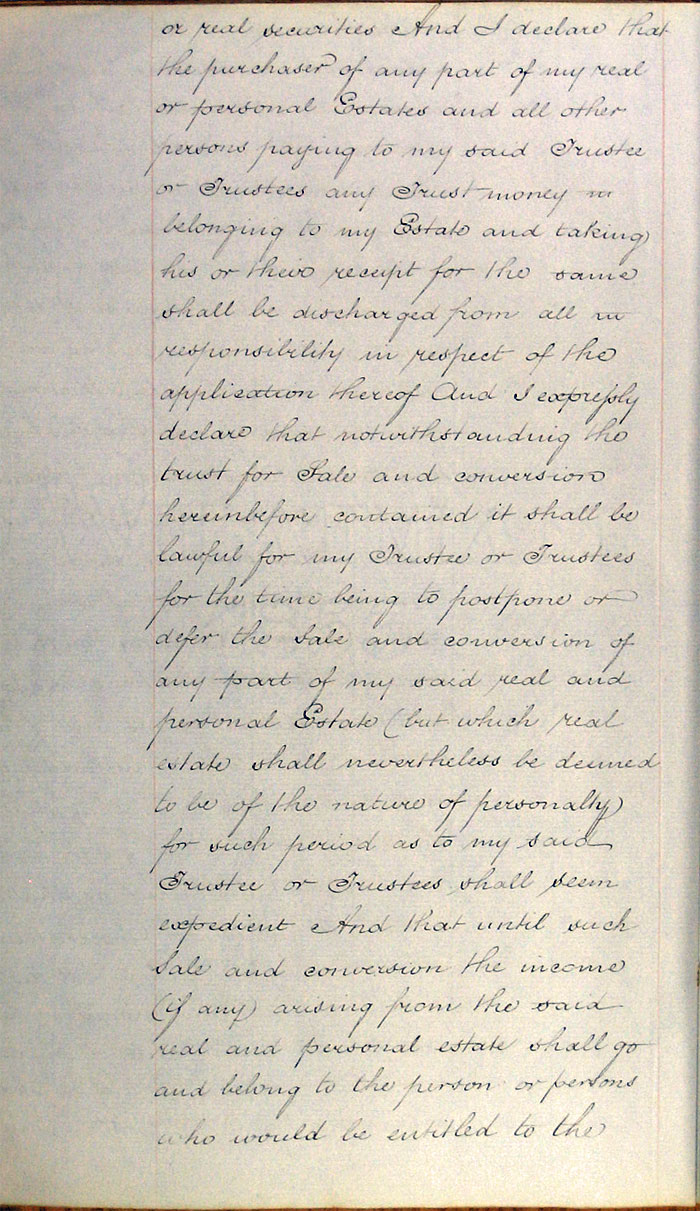 or real securities And I declare that
the purchaser of any part of my real
or personal Estates and all other
persons paying to my said Trustee
or Trustees any Trust money
belonging to my Estate and taking
his or their receipt for the same
shall be discharged from all
responsibility in respect of the
application thereof And I expressly
declare that notwithstanding the
trust for Sale and conversion
hereinbefore contained it shall be
lawful for my Trustee or Trustees
for the time being to postpone or
defer the Sale and conversion of
any part of my said real and
personal Estate (but which real
estate shall nevertheless be deemed
to be of the nature of personalty)
for such period as to my said
Trustee or Trustees shall seem
expedient And that until such
Sale and conversion the income
(if any) arising from the said
real and personal estate shall go
and belong to the person or persons
who would be entitled to the